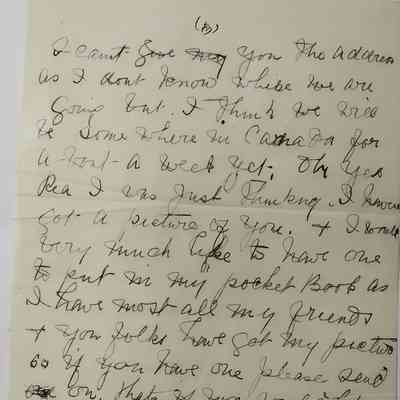 (3)
I cant give my you the address
as I dont know where we are
going but. I think we will
be some where in Canada for
a-bout-a week yet. Oh yes
Rea I was just thinkng. I havent
got a picture of you. + I would
very much like to have one
to put in my pocket Book as
I have most all my friends
+ you folks have got my picture
so if you have one please send
on. thats